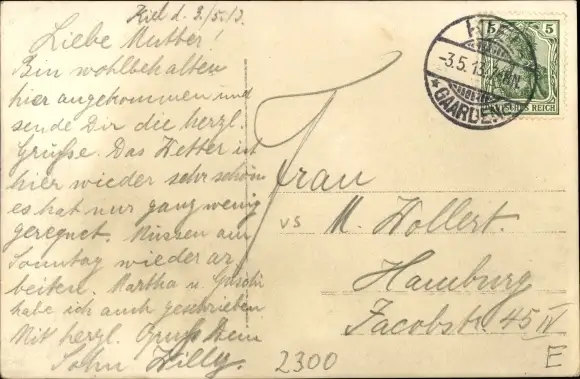 Kiel d. 3/5.13.
Liebe Mutter!
Bin wohlbehalten
hier angekommen und
sende Dir die herzl.
Grüße. Das Wetter ist
hier wieder sehr schön
es hat nur ganz wenig
geregnet. Müssen am
Sonntag wieder ar
beiten. Martha u.
habe ich auch geschrieben
Mit herzl. Gruß Dein
Sohn Willy.
5 5
-3.5.13
*GAARDEN
DEUTSCHES REICH
Frau
vs M. Wollert.
Hamburg
Jacobstr. 45 IV
2300
E